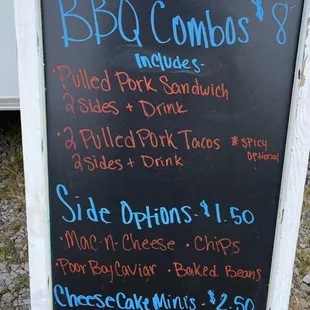 BBQ Combos $8
Includes-
• Pulled Pork Sandwich
2 Sides + Drink
• 2 Pulled Pork Tacos *Spicy
Optional
2 sides + Drink
Side Options - $1.50
• Mac-n-Cheese • Chips
• Poor Boy Caviar • Baked Beans
CheeseCake Minis - $2.50